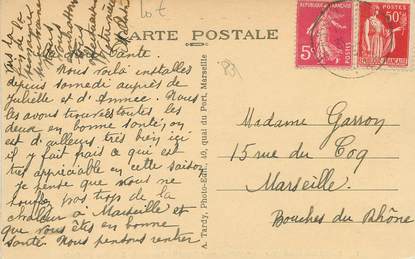 Lot
CARTE POSTALE
Tante
Nous voilà installés
depuis samedi auprès de
Juliette et d'Aimée. Nous
les avons trouvées toutes les
deux en bonne santé, on
est d'ailleurs très bien ici
il y fait frais ce qui est
très appréciable en cette saison
Je pense que vous ne
souffrez pas trop de la
chaleur à Marseille et
que vous êtes en bonne
santé. Nous pensons rentrer
A. Tardy, Photo-Edit., 40, quai du Port, Marseille
REPUBLIQUE FRANÇAISE
5c
50c
POSTES
REPUBLIQUE FRANÇAISE
Madame Garron
15 rue du Coq
Marseille
Bouches du Rhône